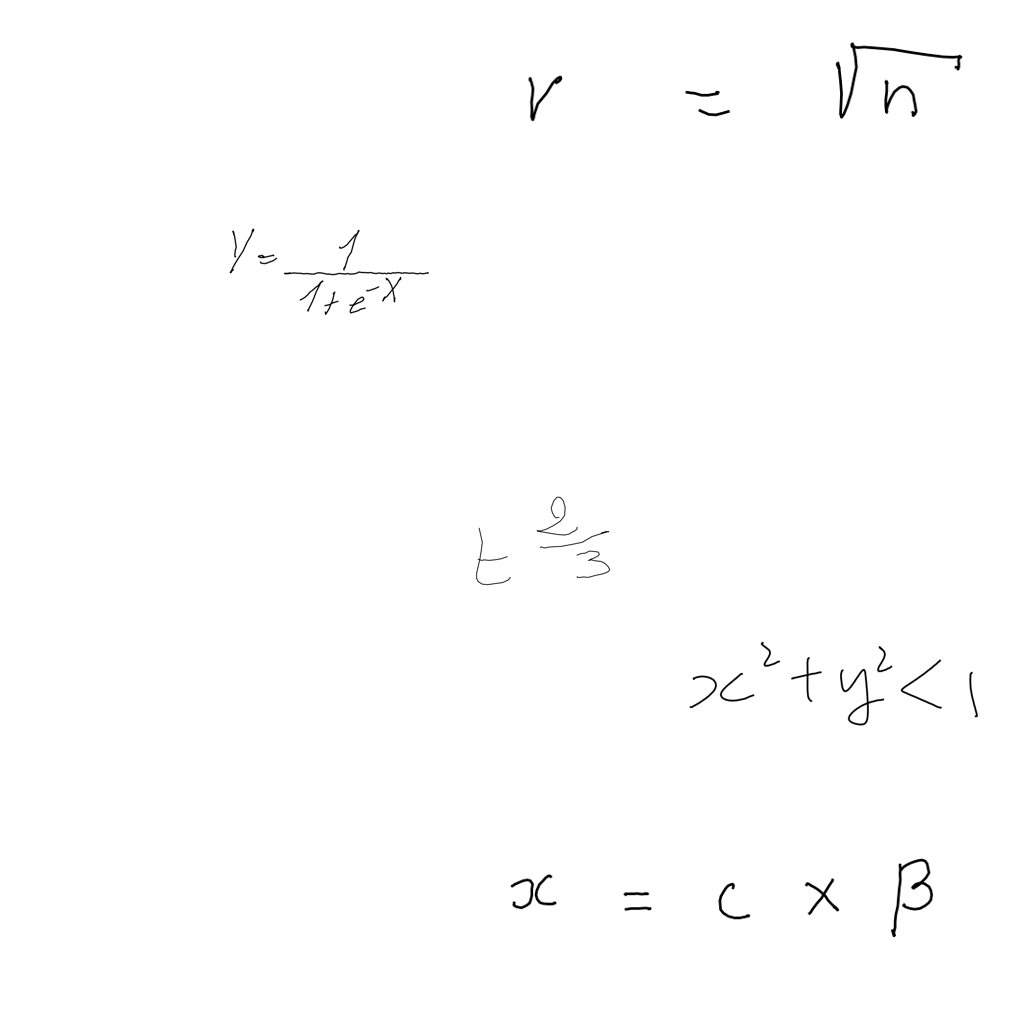 r = √n
y = 1/(1+e^-x)
t^(2/3)
x² + y² < 1
x = c × β